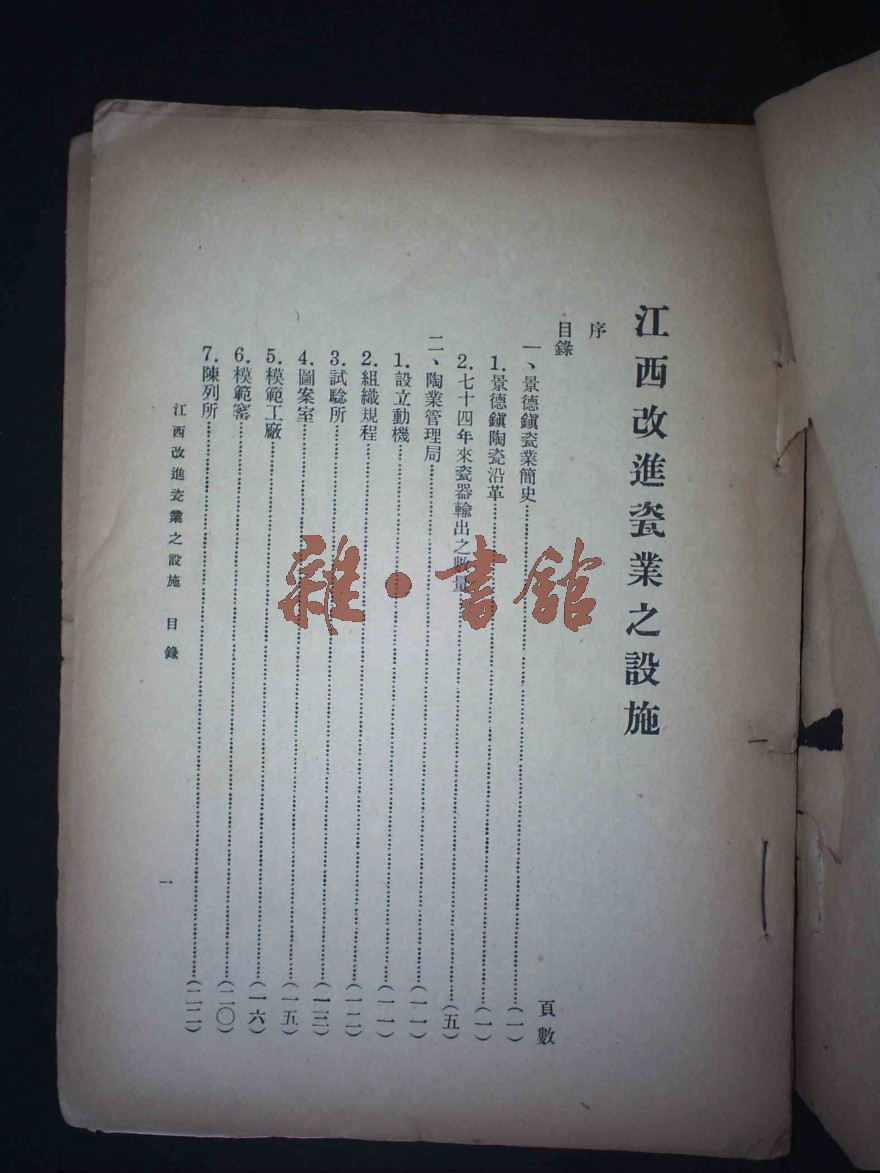 江西改進瓷業之設施
序
目錄
頁數
一、景德鎮瓷業簡史……(一)
1.景德鎮陶瓷沿革……(一)
2.七十四年來瓷器輸出之數量……(五)
二、陶業管理局……(一一)
1.設立動機……(一一)
2.組織規程……(一二)
3.試驗所……(一三)
4.圖案室……(一五)
5.模範工廠……(一六)
6.模範窰……(二〇)
7.陳列所……(二二)
江西改進瓷業之設施 目錄
一
雜·書館